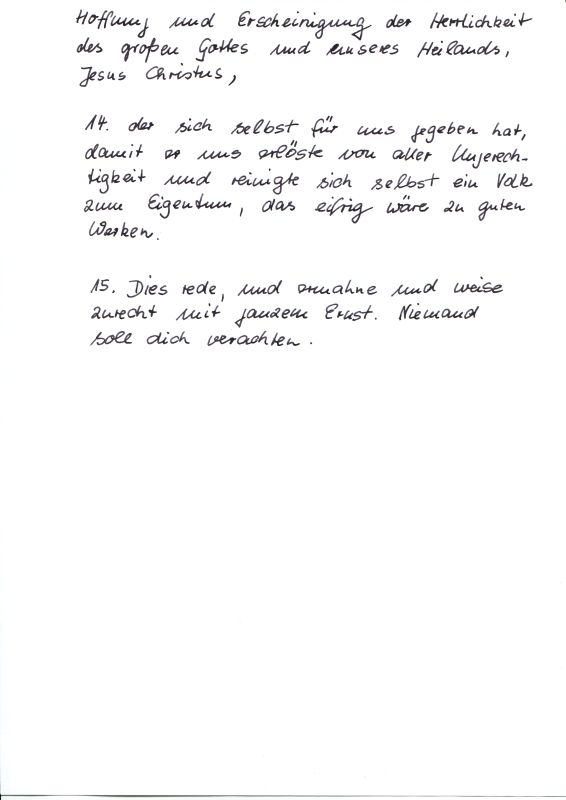 Hoffnung und Erscheinigung der Herrlichkeit
des großen Gottes und unseres Heilands,
Jesus Christus,
14. der sich selbst für uns gegeben hat,
damit er uns erlöste von aller Ungerech-
tigkeit und reinigte sich selbst ein Volk
zum Eigentum, das eifrig wäre zu guten
Werken.
15. Dies rede, und ermahne und weise
zurecht mit ganzem Ernst. Niemand
soll dich verachten.